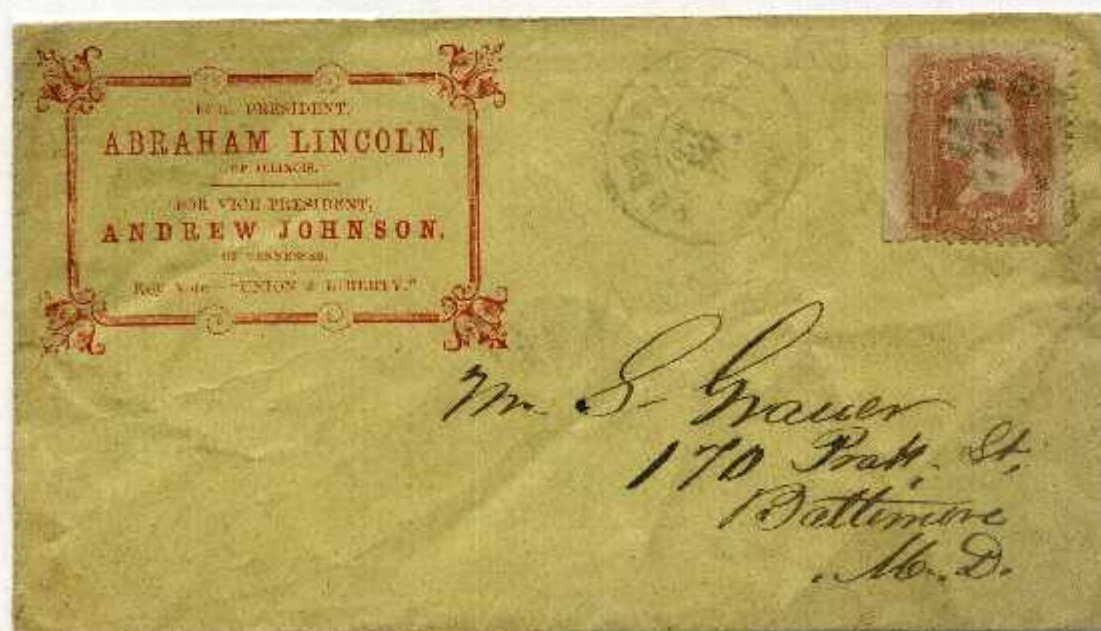 FOR PRESIDENT,
ABRAHAM LINCOLN,
OF ILLINOIS.
FOR VICE PRESIDENT,
ANDREW JOHNSON,
OF TENNESSEE.
"UNION & LIBERTY."
Mr. S. Grauer
170 Pratt. St,
Baltimore
M.D.